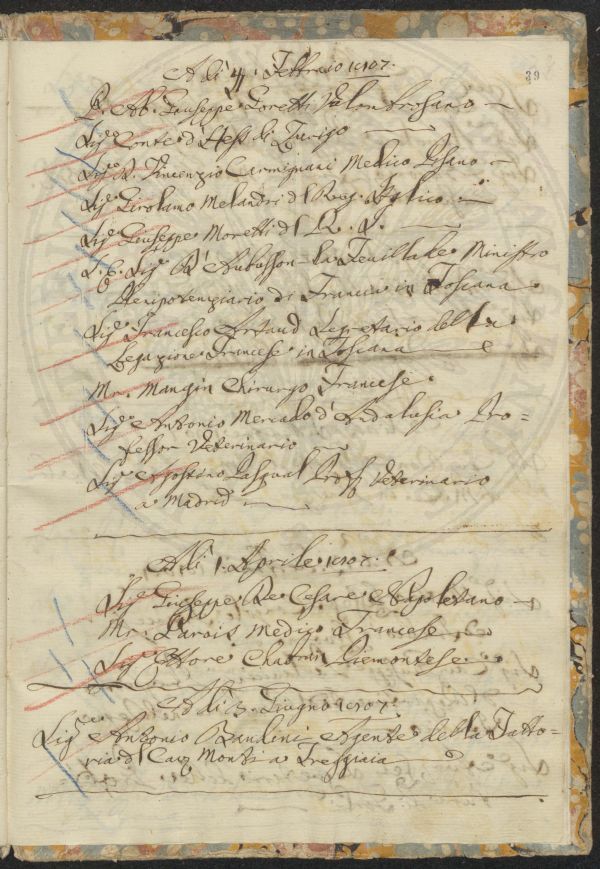 39
Adì 4. Febbraio 1807.
P. Ab. Giuseppe Loretti Valombrosano
Sig.e Conte d'Hest di
Sig.e D. Vincenzio Carmignani Medico Pisano
Sig.e Girolamo Melandri di
Sig.e Giuseppe Moretti di
S. E. Sig.e D'Aubusson la Feuillade Ministro
Plenipotenziario di Francia in Toscana
Sig.e Francesco Artaud Segretario della
Legazione Francese in Toscana
Mr. Mangin Chirurgo Francese
Sig.e Antonio Mercado d'Andalusia Pro=
fessor Veterinario
Sig.e Agostino Pasqual Prof. Veterinario
a Madrid
Adì 1. Aprile 1807.
Sig.e Giuseppe De Cesare Napoletano
Mr. Parois Medico Francese
Sig.e Ettore Piemontese
Adì 3. Giugno 1807.
Sig.e Antonio Bandini Agente della Fatto=
ria di Monti a